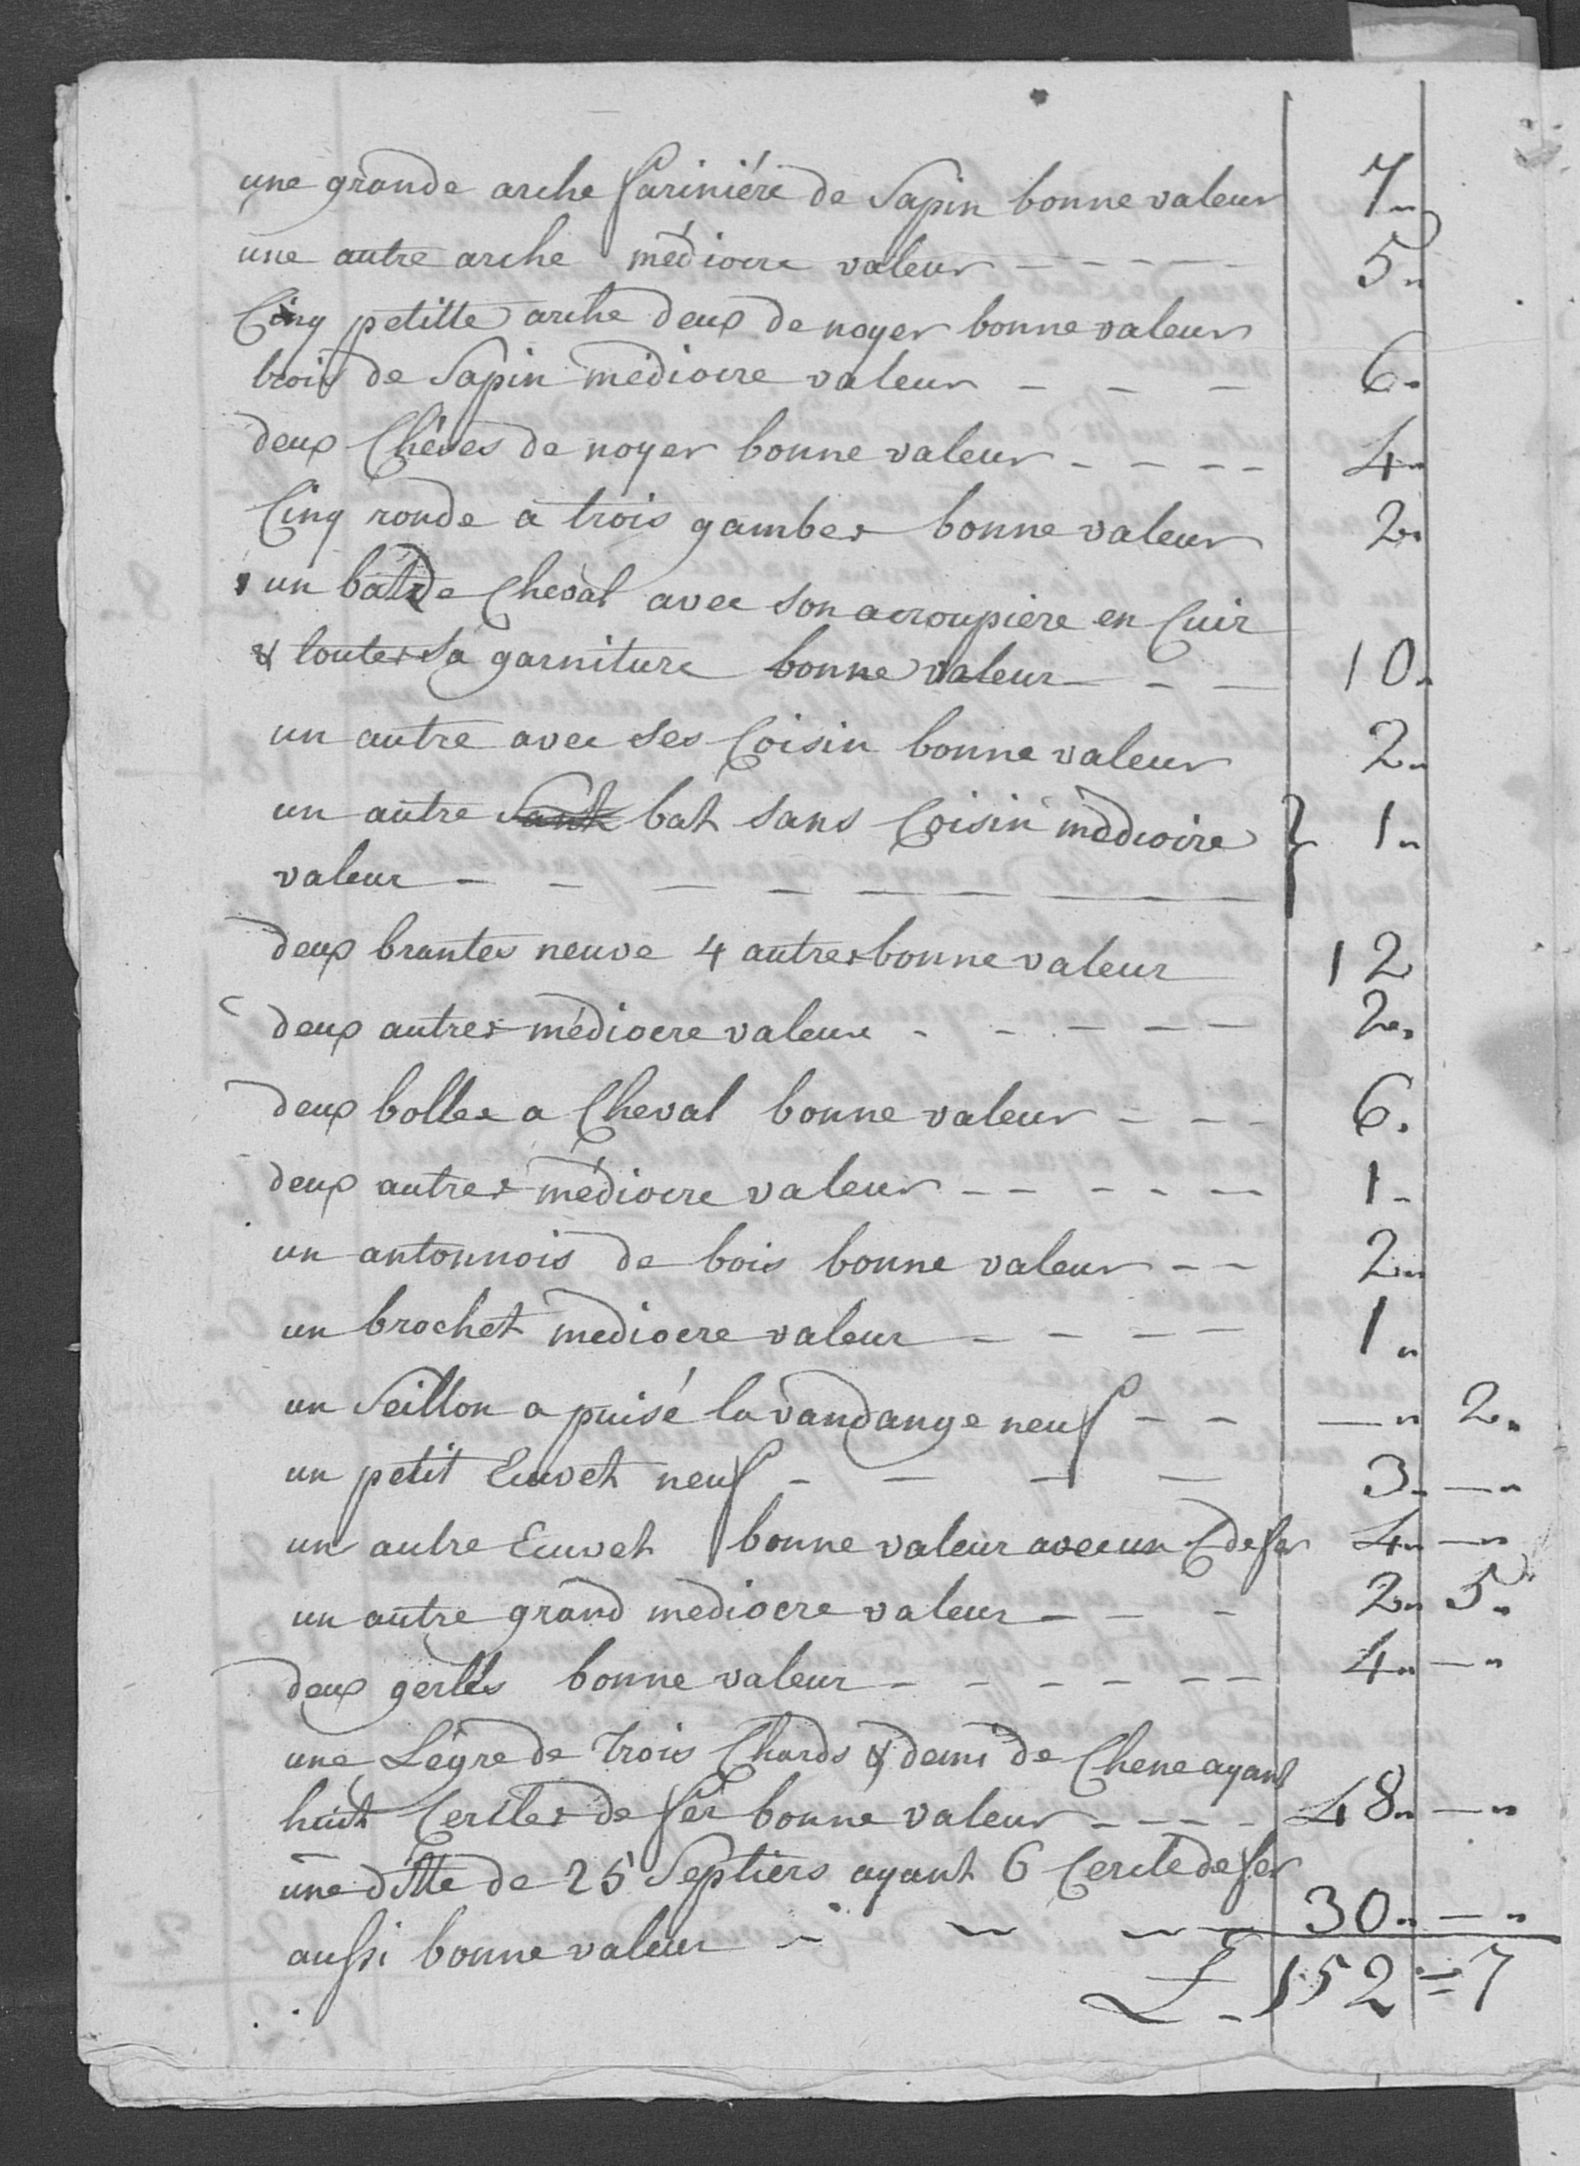 une grande arche farinière de sapin bonne valeur 7"
une autre arche médiocre valeur - - - - - 5"
Cinq petitte arche deux de noyer bonne valeur
trois de sapin médiocre valeur - - - 6"
deux Chêves de noyer bonne valeur - - - - 4"
Cinq ronde a trois gambes bonne valeur 2"
un bât de Cheval avec son acroupiere en Cuir
& toutes sa garniture bonne valeur - - - 10"
un autre avec ses Coisin bonne valeur 2"
un autre bat sans Coisin médiocre } 1"
valeur - - - - - - -
deux brantes neuve 4 autres bonne valeur 12
deux autres médiocre valeur - - - - - 2"
deux bolles a Cheval bonne valeur - - - 6"
deux autres médiocre valeur - - - - - 1"
un antonnois de bois bonne valeur - - 2"
un brochet mediocre valeur - - - - 1"
un seillon a puisé la vandange neuf - - —" 2"
un petit Cuvet neuf - - - - 3" —"
un autre Cuvet bonne valeur avec un C de fer 4" —"
un autre grand mediocre valeur - - - 2" 5"
deux gerles bonne valeur - - - - - - 4" —"
une Lègre de trois Chards & demi de Chene ayant
huit Cercles de fer bonne valeur - - - - 48" —"
une ditte de 25 Septiers ayant 6 Cercle de fer
aussi bonne valeur - - - - 30" —"
£ - 152 = 7